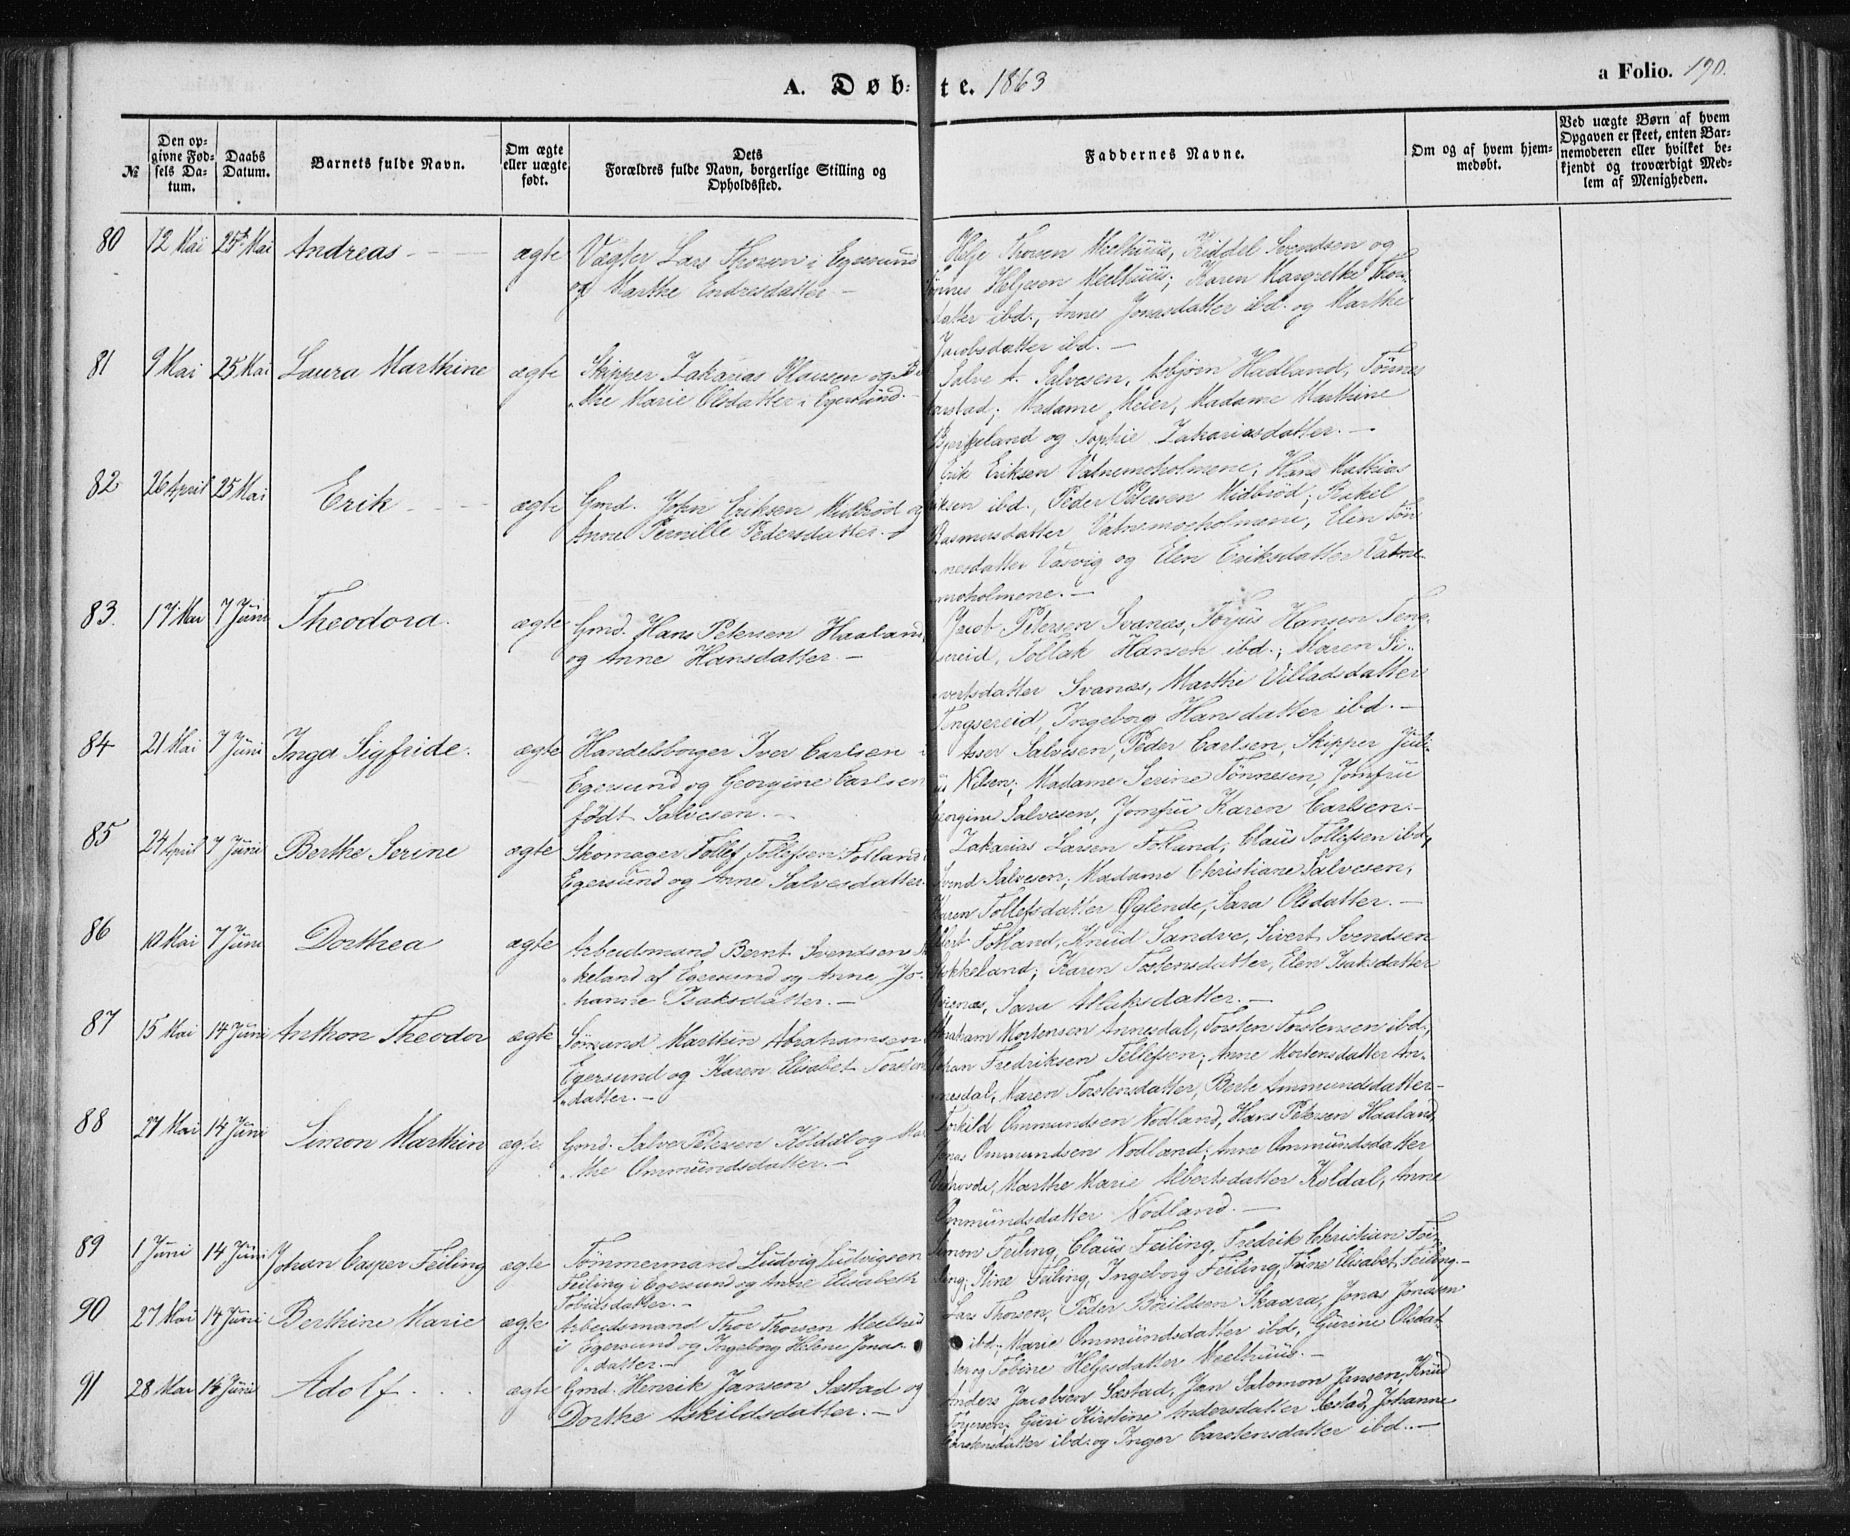 A. Døb-te. 1863
a Folio. 190.
№
Den opgivne Fødsels Datum.
Daabs Datum.
Barnets fulde Navn.
Om ægte eller uægte født.
Dets Forældres fulde Navn, borgerlige Stilling og Opholdssted.
Faddernes Navne.
Om og af hvem hjemmedøbt.
Ved uægte Børn af hvem Opgaven er skeet, enten Barnemoderen eller hvilket bekjendt og troværdigt Medlem af Menigheden.
80 12 Mai 25de Mai Andreas ægte Vægter Lars Thorsen i Egersund
og Marthe Endresdatter.
Helje Thorsen Meelhuus, Svendsen og
Heljesen Meelhuus; Karen Margrethe Thors
datter ibd., Anne Jonasdatter ibd. og Marthe
Jacobsdatter ibd.
81 9 Mai 25 Mai Laura Marthine ægte Skipper Zakarias Clausen og
the Marie Olsdatter i Egersund.
Salve A. Salvesen, Asbjørn Hadland, Tønnes
Aarstad; Madame Meier, Madame Marthine
og Sophie Zakariasdatter.
82 26 April 25 Mai Erik ægte Gmd. John Eriksen Midbrød og
Anne Pernille Pedersdatter.
Erik Eriksen Vatnemoholmene; Hans Mathias
Eriksen ibd., Peder Petersen Midbrød; Rakel
Rasmusdatter Vatnemoeholmene, Elen Tøn
nesdatter Vasvig og Elen Eriksdatter Vatne
moholmene.
83. 17 Mai 7 Juni Theodora. ægte Gmd. Hans Petersen Haaland
og Anne Hansdatter.
Jacob Petersen Svanæs, Torjus Hansen Teng
sereid, Tollak Hansen ibd.; Maren Si
vertsdatter Svanæs, Marthe Villadsdatter
Tengsereid, Ingeborg Hansdatter ibd.
84 21 Mai 7 Juni Inga Sigfride. ægte Handelsborger Iver Carlsen i
Egersund og Georgine Carlsen
født Salvesen.
Asser Salvesen, Peder Carlsen, Skipper Juli
us Nilsen; Madame Serine Tønnesen, Jomfru
Georgine Salvesen, Jomfru Karen Carlsen.
85 24 April 7 Juni Berthe Serine ægte Skomager Tollef Tollefsen Fotland i
Egersund og Anne Salvesdatter.
Zakarias Larsen Fotland, Claus Tollefsen ibd.,
Svend Salvesen; Madame Christiane Salvesen,
Karen Tollefsdatter Øglende, Sara Olsdatter.
86 10 Mai 7 Juni Dorthea ægte Arbeidsmand Bernt Svendsen
keland af Egersund og Anne Jo
hanne Isaksdatter.
Fotland, Knud Sandve, Sivert Svendsen
Karen Tostensdatter, Elen Isaksdatter
Sara Atlaksdatter.
87 15 Mai 14 Juni Anthon Theodor ægte Sømand Marthin Abrahamsen i
Egersund og Karen Elisabet Torsten
datter.
Abraham Mortensen Annesdal, Torsten Torstensen ibd.,
Johan Fredriksen Tellefsen; Anne Mortensdatter An
nesdal, Maren Torstensdatter, Berte Ammundsdatter
88 27 Mai 14 Juni Simon Marthin ægte Gmd. Salve Petersen Koldal og Mar
the Ommundsdatter.
Torkild Ommundsen Nodland, Hans Petersen Haaland,
Jonas Ommundsen Nodland; Anne Ommundsdatter
Marthe Marie Albertsdatter Koldal, Anne
Ommundsdatter Nodland.
89 1 Juni 14 Juni Johan Casper Feiling ægte Tømmermand Ludvig Ludvigsen
Feiling i Egersund og Anne Elisabeth
Tobiasdatter.
Simon Feiling, Claus Feiling, Fredrik Christian Fei
ling; Stine Feiling, Ingeborg Feiling, Trine Elisabet Feiling.
90 27 Mai 14 Juni Berthine Marie ægte Arbeidsmand Thor Thorsen Meelhuus
i Egersund og Ingeborg Helene Jonas
datter.
Lars Thorsen, Peder Skaara, Jonas Jonasen
ibd.; Marie Ommundsdatter ibd., Gurine Olsdat
ter og Tobine Heljesdatter Meelhuus.
91 28 Mai 14 Juni Adolf. ægte Gmd. Henrik Jansen Sæstad og
Dorthe Askildsdatter.
Anders Jacobsen Sæstad, Jan Salomon Jansen, Knud
Guri Kirstine Andersdatter Sæstad, Johanne
Carstensdatter ibd. og Inger Carstensdatter ibd.